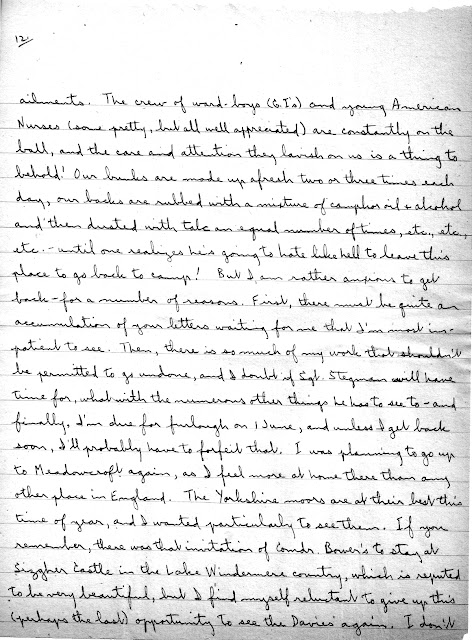 12.
ailments. The crew of ward-boys (G.I.'s) and young American
Nurses (some pretty, but all well appreciated) are constantly on the
ball, and the care and attention they lavish on us is a thing to
behold! Our bunks are made up afresh two or three times each
day, our backs are rubbed with a mixture of camphor oil & alcohol
and then dusted with talc an equal number of times, etc., etc.,
etc. - until one realizes he's going to hate like hell to leave this
place to go back to camp! But I am rather anxious to get
back - for a number of reasons. First, there must be quite an
accumulation of your letters waiting for me that I'm most im-
patient to see. Then, there is so much of my work that shouldn't
be permitted to go undone, and I doubt if Sgt. Stegman will have
time for, what with the numerous other things he has to see to - and
finally, I'm due for furlough on 1 June, and unless I get back
soon, I'll probably have to forfeit that. I was planning to go up
to Meadowcroft again, as I feel more at home there than any
other place in England. The Yorkshire moors are at their best this
time of year, and I wanted particularly to see them. If you
remember, there was that invitation of Comdr. Bower's to stay at
Sizgher Castle in the Lake Windermere country, which is reputed
to be very beautiful, but I find myself reluctant to give up this
(perhaps the last) opportunity to see the Davies' again. I don't